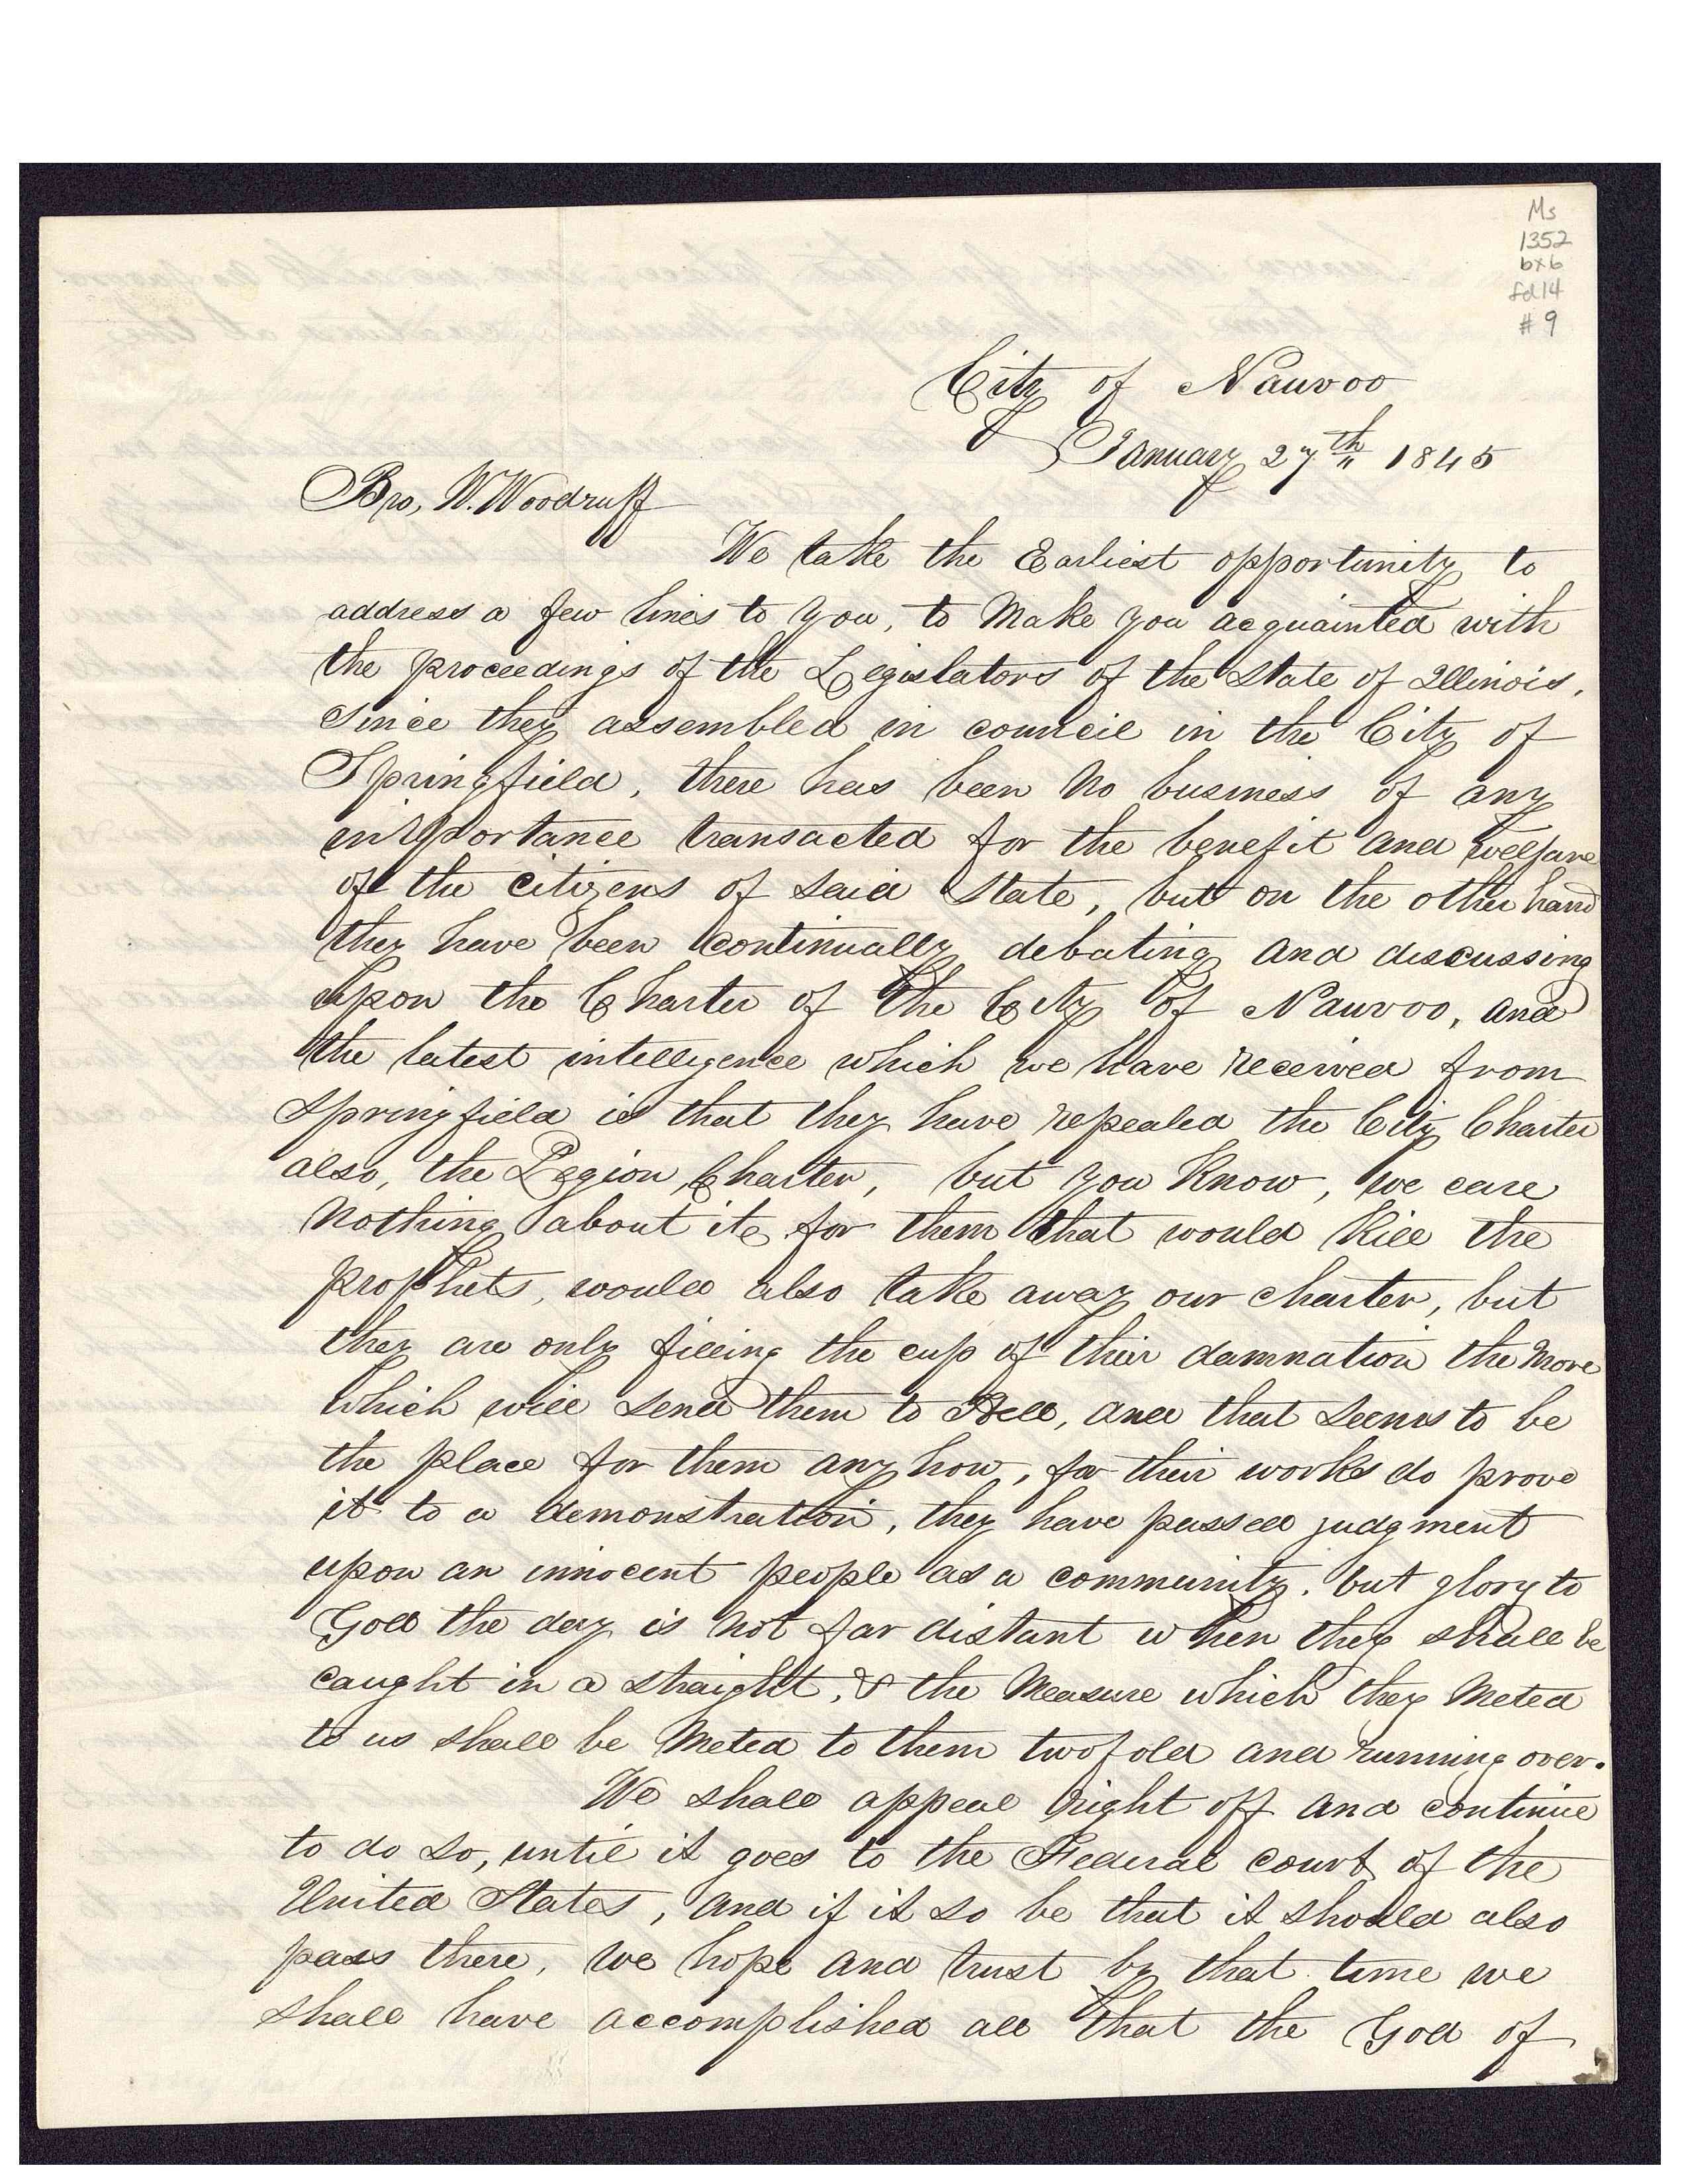 Ms
1352
bx6
fd14
# 9
City of Nauvoo
January 27th 1845
Bro, W. Woodruff
We take the Earliest opportunity to
address a few lines to you, to Make you acquainted with
the proceedings of the Legislators of the State of Illinois,
since they assembled in council in the City of
Springfield, there has been No business of any
importance transacted for the benefit and welfare
of the citizens of said State, but on the other hand
they have been continually debating and discussing
upon the Charter of the City of Nauvoo, and
the latest intelligence which we have received from
Springfield is that they have repealed the City Charter
also, the Legion Charter, but you Know, we care
Nothing about it, for them that would kill the
prophets, would also take away our charter, but
they are only filling the cup of their damnation the More
which will send them to Hell, and that seems to be
the place for them any how, for their works do prove
it to a demonstration, they have passed judgment
upon an innocent people as a community. but glory to
God the day is not far distant when they shall be
caught in a straight, & the Measure which they Meted
to us shall be Meted to them twofold and running over.
We shall appeal right off and continue
to do so, until it goes to the Federal court of the
United States, and if it so be that it should also
pass there, we hope and trust by that time we
shall have accomplished all that the God of